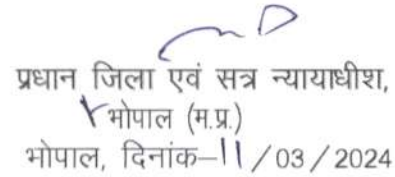 प्रधान जिला एवं सत्र न्यायाधीश,
भोपाल (म.प्र.)
भोपाल, दिनांक–11/03/2024